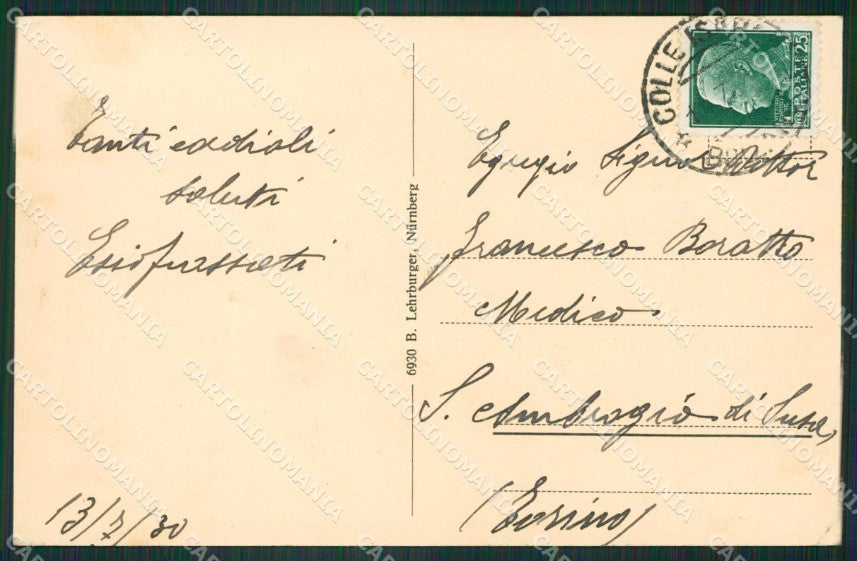 Tanti cordiali
saluti
13/7/30
6930 B. Lehrburger, Nürnberg
COLLE
POSTE ITALIANE
25
Egregio Signor Dottor
Francesco Boratto
Medico
S. Ambrogio di Susa
(Torino)
CARTOLINOMANIA